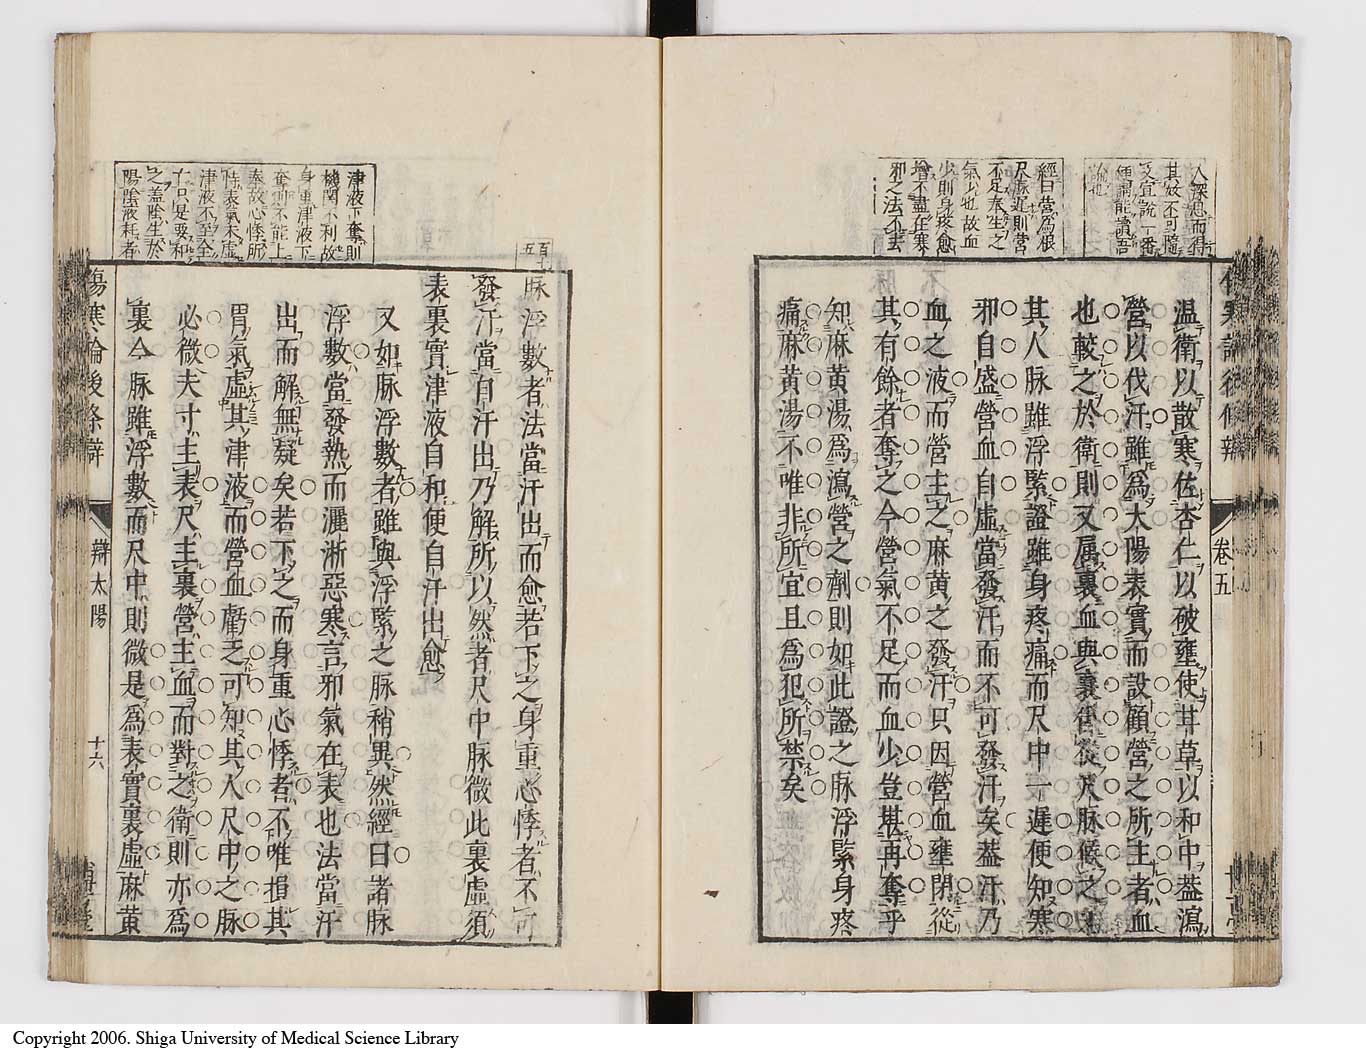 人深思而得
其妙不可隨
又宜說一番
便謂能讀吾
論也
經曰營爲根
尺脉遲則營
不足奉生之
氣少也故血
少則身疼愈
增不盡在寒
邪之法不去
卷五
温衛以散寒佐杏仁以破壅使甘草以和中葢瀉
營以伐汗雖爲太陽表實而設顧營之所主者血
也較之於衛則又属裏血與裏
其人脉雖浮緊證雖身疼痛而尺中一遲便知寒
邪自盛營血自虛當發汗而不可發汗矣葢汗乃
血之液而營主之麻黄之發汗只因營血壅閉從
其有餘者奪之今營氣不足而血少豈堪再奪乎
知麻黄湯爲瀉營之劑則如此證之脉浮緊身疼
痛麻黄湯不唯非所宜且爲犯所禁矣
津液下奪則
機関不利故
身重津液下
奪則不能上
奉故心悸所
恃表氣未虛
津液不至全
亡只是要和
之蓋陰生於
陽陰液耗者
百五
脉浮數者法當汗出而愈若下之身重心悸者不可
發汗當自汗出乃解所以然者尺中脉微此裏虛須
表裏實津液自和便自汗出愈
又如脉浮數者雖與浮緊之脉稍異然經曰諸脉
浮數當發熱而灑淅惡寒言邪氣在表也法當汗
出而解無疑矣若下之而身重心悸者不唯損其
胃氣虛其津液而營血虧乏可知其人尺中之脉
必微夫寸主表尺主裏營主血而對之衛則亦爲
裏今脉雖浮數而尺中則微是爲表實裏虛麻黄
傷寒論後條辯
辯太陽
十六
Copyright 2006. Shiga University of Medical Science Library